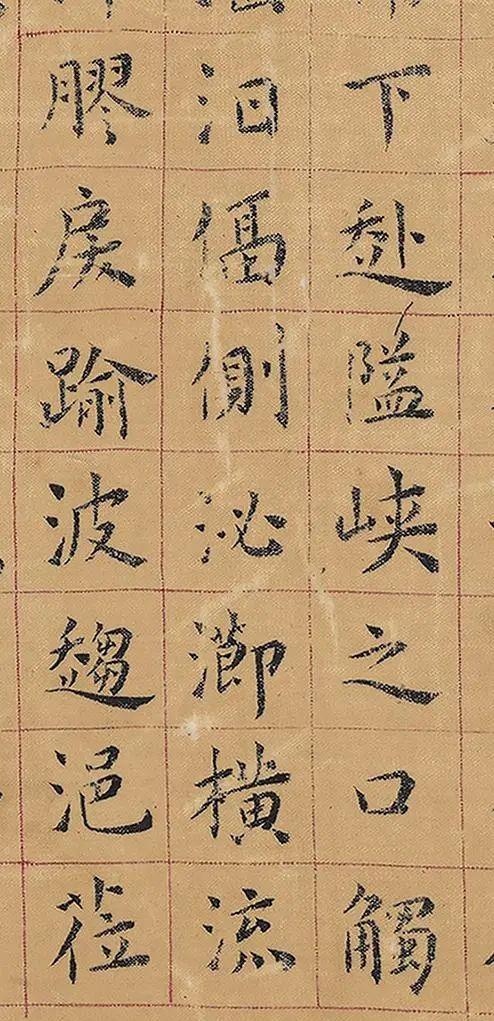 下赴隘峽之口觸
汩偪側泌瀄橫流
膠戾踰波趨浥莅